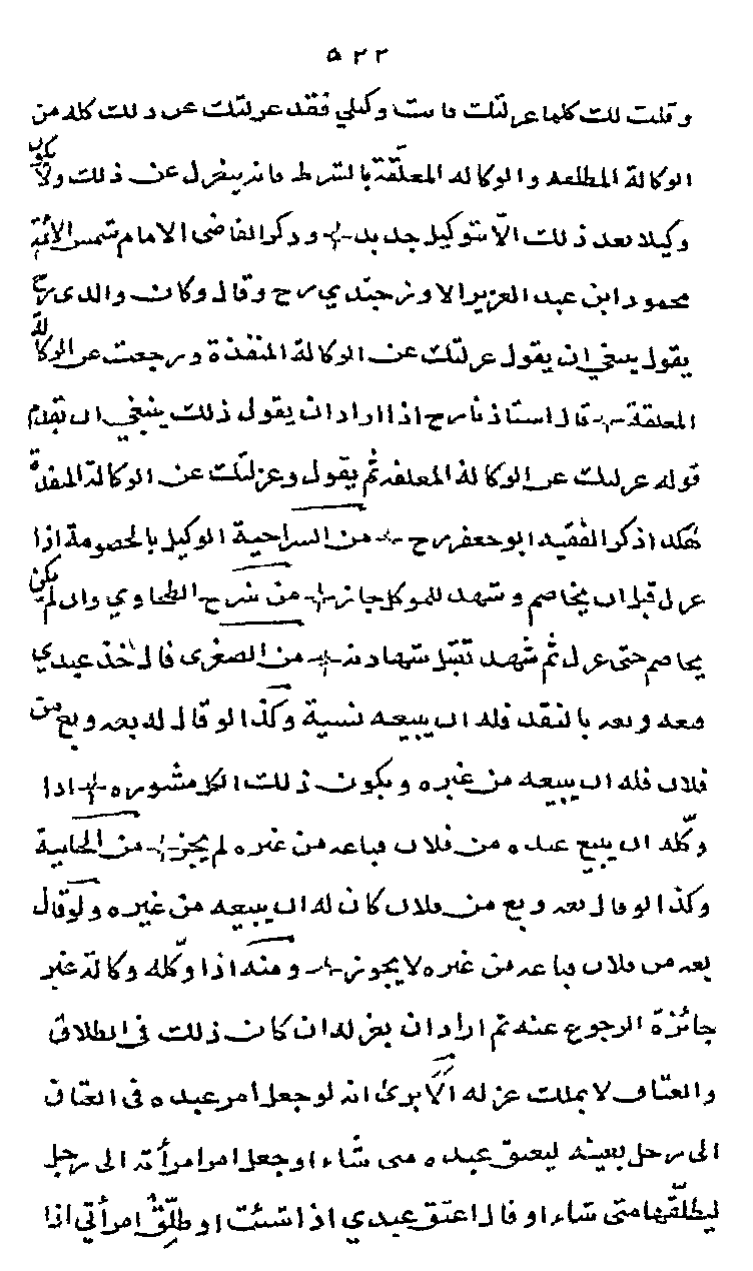 ٥٢٢
وقلت لك كلما عزلتك فانت وكيلي فقد عزلتك عن ذلك كله من
الوكالة المطلقة والوكالة المعلّقة بالشرط فانه ينعزل عن ذلك ولا يكون
وكيلا بعد ذلك الّا بتوكيل جديد وذكر القاضى الامام شمس الائمة
محمود ابن عبد العزيز الاوزجندي رح وقال وكان والدى رح
يقول ينبغي ان يقول عزلتك عن الوكالة المنفذة ورجعت عن الوكالة
المعلقة قال استاذنا رح اذا اراد ان يقول ذلك ينبغي ان تقدم
قوله عزلتك عن الوكالة المعلقة ثم يقول وعزلتك عن الوكالة المنفذة
هكذا ذكر الفقيه ابو جعفر رح من السراجية الوكيل بالخصومة اذا
عزل قبل ان يخاصم وشهد للموكل جاز من شرح الطحاوي وان لم يكن
يخاصم حتى عزل ثم شهد تقبل شهادته من الصغرى قال خذ عبدي
هذا وبعه بالنقد فله ان يبيعه نسية وكذا لو قال له بعه وبع من
فلان فله ان يبيعه من غيره ويكون ذلك الكل مشوره اذا
وكّله ان يبيع عبده من فلان فباعه من غيره لم يجز من الخانية
وكذا لو قال بعه وبع من فلان كان له ان يبيعه من غيره ولو قال
بعه من فلان فباعه من غيره لا يجوز ومنه اذا وكّله وكالة غير
جائزة الرجوع عنه ثم اراد ان يعزله ان كان ذلك فى الطلاق
والعتاق لا يملك عزله ألا يرى انه لو جعل امر عبده فى العتاق
الى رجل بعينه ليعتق عبده متى شاء او جعل امر امرأته الى رجل
ليطلّقها متى شاء او قال اعتق عبدي اذا شئت او طلّق امرأتي اذا